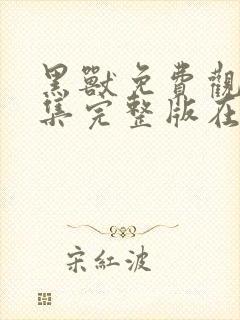 黑獸免費觀
集完整版在
宋紅波